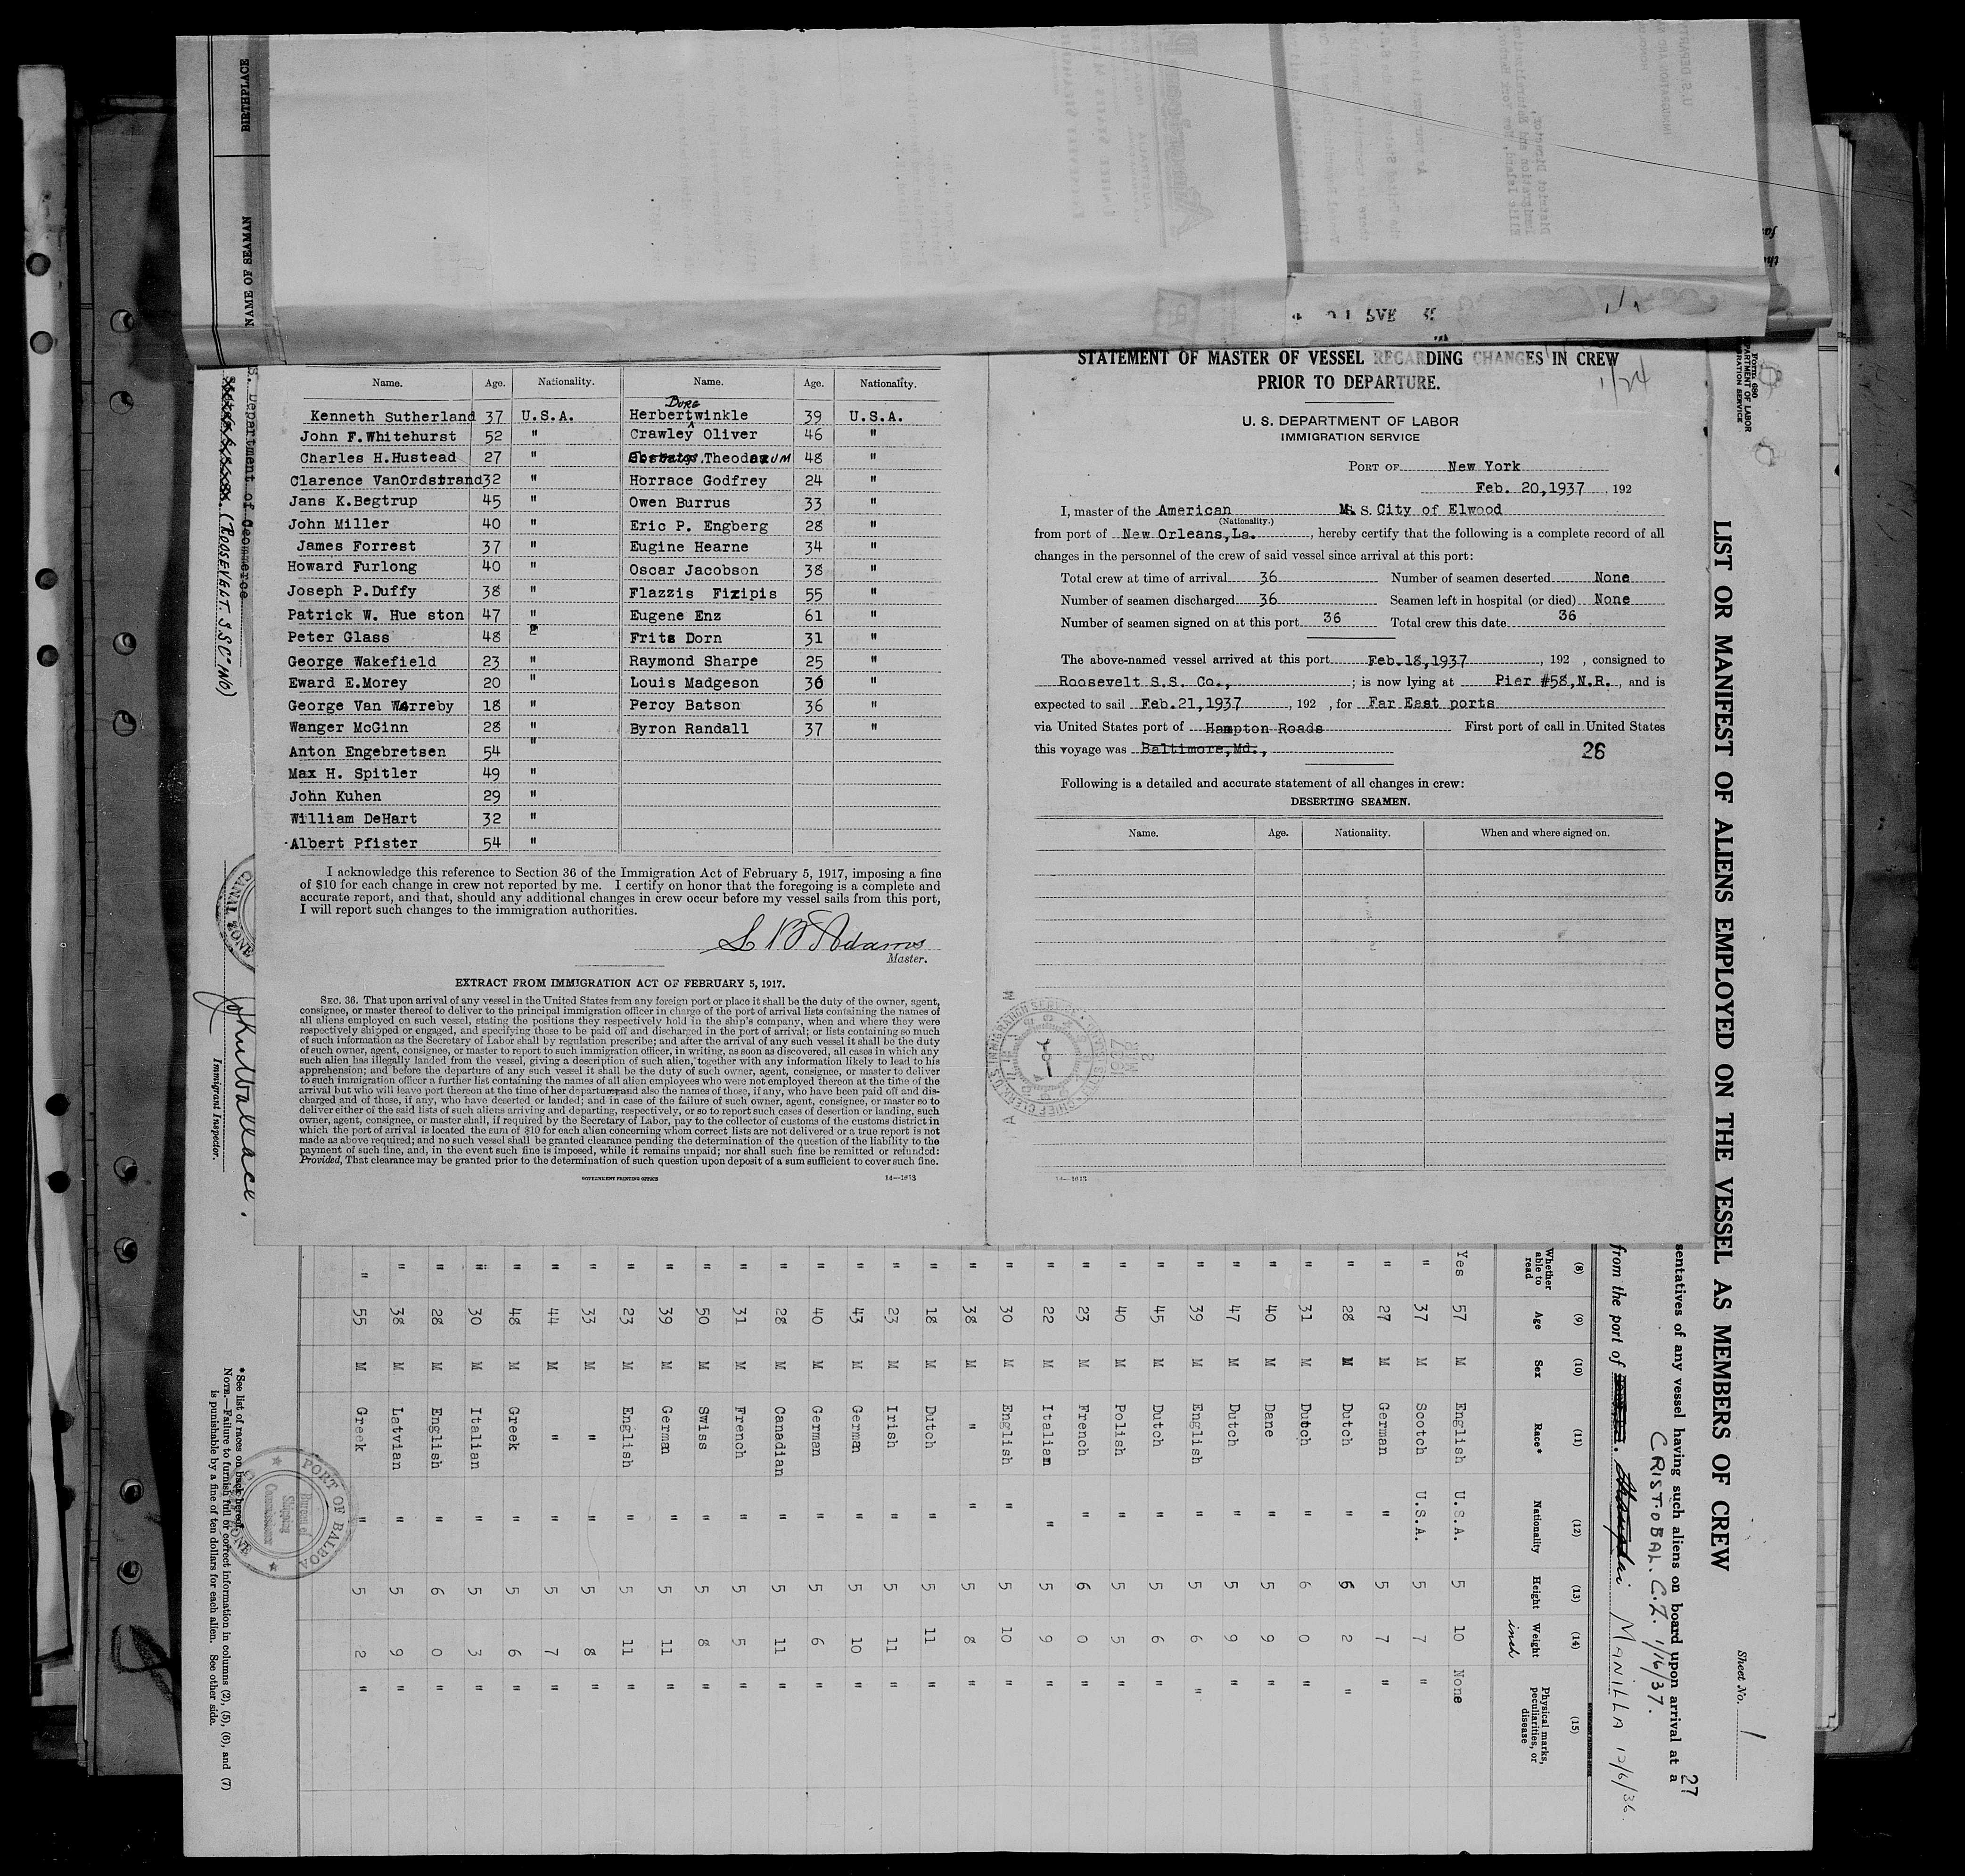 Name. Age. Nationality. Name. Age. Nationality.
Kenneth Sutherland 37 U.S.A. Herbert Burg winkle 39 U.S.A.
John F.Whitehurst 52 " Crawley Oliver 46 "
Charles H.Hustead 27 " Theodorum 48 "
Clarence VanOrdstrand 32 " Horrace Godfrey 24 "
Jans K.Begtrup 45 " Owen Burrus 33 "
John Miller 40 " Eric P. Engberg 28 "
James Forrest 37 " Eugine Hearne 34 "
Howard Furlong 40 " Oscar Jacobson 38 "
Joseph P.Duffy 38 " Flazzis Fizipis 55 "
Patrick W. Hue ston 47 " Eugene Enz 61 "
Peter Glass 48 " Frits Dorn 31 "
George Wakefield 23 " Raymond Sharpe 25 "
Eward E.Morey 20 " Louis Madgeson 36 "
George Van Werreby 18 " Percy Batson 36 "
Wanger McGinn 28 " Byron Randall 37 "
Anton Engebretsen 54 "
Max H. Spitler 49 "
John Kuhen 29 "
William DeHart 32 "
Albert Pfister 54 "
I acknowledge this reference to Section 36 of the Immigration Act of February 5, 1917, imposing a fine
of $10 for each change in crew not reported by me. I certify on honor that the foregoing is a complete and
accurate report, and that, should any additional changes in crew occur before my vessel sails from this port,
I will report such changes to the immigration authorities.
Adams
Master.
EXTRACT FROM IMMIGRATION ACT OF FEBRUARY 5, 1917.
SEC. 36. That upon arrival of any vessel in the United States from any foreign port or place it shall be the duty of the owner, agent,
consignee, or master thereof to deliver to the principal immigration officer in charge of the port of arrival lists containing the names of
all aliens employed on such vessel, stating the positions they respectively hold in the ship's company, when and where they were
respectively shipped or engaged, and specifying those to be paid off and discharged in the port of arrival; or lists containing so much
of such information as the Secretary of Labor shall by regulation prescribe; and after the arrival of any such vessel it shall be the duty
of such owner, agent, consignee, or master to report to such immigration officer, in writing, as soon as discovered, all cases in which any
such alien has illegally landed from the vessel, giving a description of such alien, together with any information likely to lead to his
apprehension; and before the departure of any such vessel it shall be the duty of such owner, agent, consignee, or master to deliver
to such immigration officer a further list containing the names of all alien employees who were not employed thereon at the time of the
arrival but who will leave port thereon at the time of her departure, and also the names of those, if any, who have been paid off and dis-
charged and of those, if any, who have deserted or landed; and in case of the failure of such owner, agent, consignee, or master so to
deliver either of the said lists of such aliens arriving and departing, respectively, or so to report such cases of desertion or landing, such
owner, agent, consignee, or master shall, if required by the Secretary of Labor, pay to the collector of customs of the customs district in
which the port of arrival is located the sum of $10 for each alien concerning whom correct lists are not delivered or a true report is not
made as above required; and no such vessel shall be granted clearance pending the determination of the question of the liability to the
payment of such fine, and, in the event such fine is imposed, while it remains unpaid; nor shall such fine be remitted or refunded:
Provided, That clearance may be granted prior to the determination of such question upon deposit of a sum sufficient to cover such fine.
GOVERNMENT PRINTING OFFICE 14—1613
STATEMENT OF MASTER OF VESSEL REGARDING CHANGES IN CREW
PRIOR TO DEPARTURE.
1/24
U. S. DEPARTMENT OF LABOR
IMMIGRATION SERVICE
PORT OF New York
Feb. 20,1937 , 192
I, master of the American M. S. City of Elwood
(Nationality.)
from port of New Orleans,La. , hereby certify that the following is a complete record of all
changes in the personnel of the crew of said vessel since arrival at this port:
Total crew at time of arrival 36 Number of seamen deserted None
Number of seamen discharged 36 Seamen left in hospital (or died) None
Number of seamen signed on at this port 36 Total crew this date 36
The above-named vessel arrived at this port Feb.18,1937 , 192 , consigned to
Roosevelt S.S. Co., ; is now lying at Pier #58,N.R. , and is
expected to sail Feb.21,1937 , 192 , for Far East ports
via United States port of Hampton Roads First port of call in United States
this voyage was Baltimore,Md.,
26
Following is a detailed and accurate statement of all changes in crew:
DESERTING SEAMEN.
Name. Age. Nationality. When and where signed on.
14—1613
Form 680
LIST OR MANIFEST OF ALIENS EMPLOYED ON THE VESSEL AS MEMBERS OF CREW
Sheet No. 1
27
sentatives of any vessel having such aliens on board upon arrival at a
CRISTOBAL. C.Z. 1/16/37.
from the port of MANILLA 12/6/36.
(8) (9) (10) (11) (12) (13) (14) (15)
Whether able to read Age Sex Race* Nationality Height Weight Physical marks, peculiarities, or disease
inch
Yes 57 M English U.S.A. 5 10 None
" 37 M Scotch U.S.A. 5 7 "
" 27 M German " 5 7 "
" 28 M Dutch " 6 2 "
" 31 M Dutch " 6 0 "
" 40 M Dane " 5 9 "
" 47 M Dutch " 5 9 "
" 39 M English " 5 6 "
" 45 M Dutch " 5 6 "
" 40 M Polish " 5 5 "
" 23 M French " 6 0 "
" 22 M Italian " 5 9 "
" 30 M English " 5 10 "
" 38 M " " 5 8 "
" 18 M Dutch " 5 11 "
" 23 M Irish " 5 11 "
" 43 M German " 5 10 "
" 40 M German " 5 6 "
" 28 M Canadian " 5 11 "
" 31 M French " 5 5 "
" 50 M Swiss " 5 8 "
" 39 M German " 5 11 "
" 23 M English " 5 11 "
" 33 M " " 5 8 "
" 44 M " " 5 7 "
" 48 M Greek " 5 6 "
" 30 M Italian " 5 3 "
" 28 M English " 6 0 "
" 38 M Latvian " 5 9 "
" 55 M Greek " 5 2 "
* See list of races on back hereof.
NOTE.—Failure to furnish full or correct information in columns (2), (5), (6), and (7)
is punishable by a fine of ten dollars for each alien. See other side.
PORT OF BALBOA
Bureau of
Shipping
Commissioner
BIRTHPLACE
NAME OF SEAMAN
Department of Commerce
(ROOSEVELT. S.S. Co INO)
CANAL ZONE
John Wallace.
Immigrant Inspector.